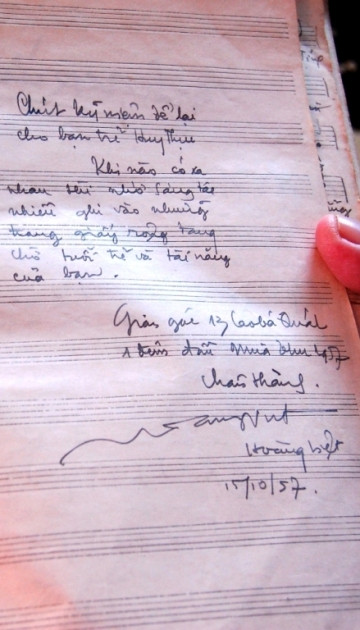 Chút kỷ niệm để lại
cho bạn trẻ Huy Thục
Khi nào có xa
nhau thì nhớ sáng tác
nhiều ghi vào những
trang giấy rộng tang
cho tuổi trẻ và tài năng
của bạn.
Gian gác 13 Cao Bá Quát
1 đêm đầu mùa thu 1957
Hoàng Việt
15/10/57.